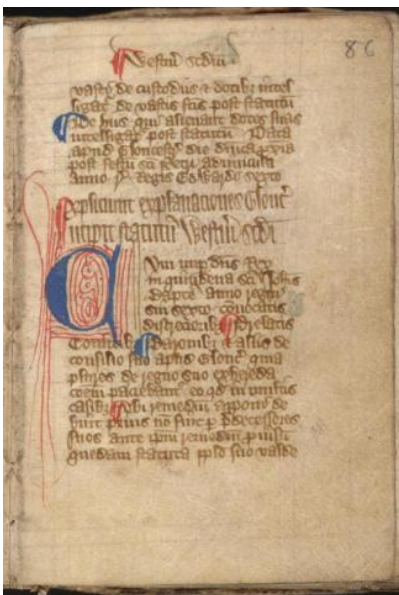 Westm̄ scdm̄
86
vasto de custodiis ⁊ dotibȝ intel
ligat̄ de vastis fc̄is post statutū
De hiis qui alienant dotes suas
intelligat̄ post statutū Data
apud Glouc̄ die dn̄ica pxīa
post festū sc̄i petri ad vincula
Anno r̄ Regis Edwardi sexto
Expliciunt explanationes Glouc̄
incipit statutū Westm̄ scdī
Cum nup dn̄s Rex
in quindena sc̄i Joh̄is
Bapte anno regni
sui sexto conuocatis
Prelatis
Comitibȝ Baronibȝ ⁊ aliis de
consilio suo apud Glouc̄ quia
plures de regno suo exhereda
cōem paciebant̄ eo qd̄ in multis
casibȝ ubi remediū apponi de
buit prius nō fuit p p̄decessores
suos ante ip̄m remediū puisū
quedam statuta pplo suo valde